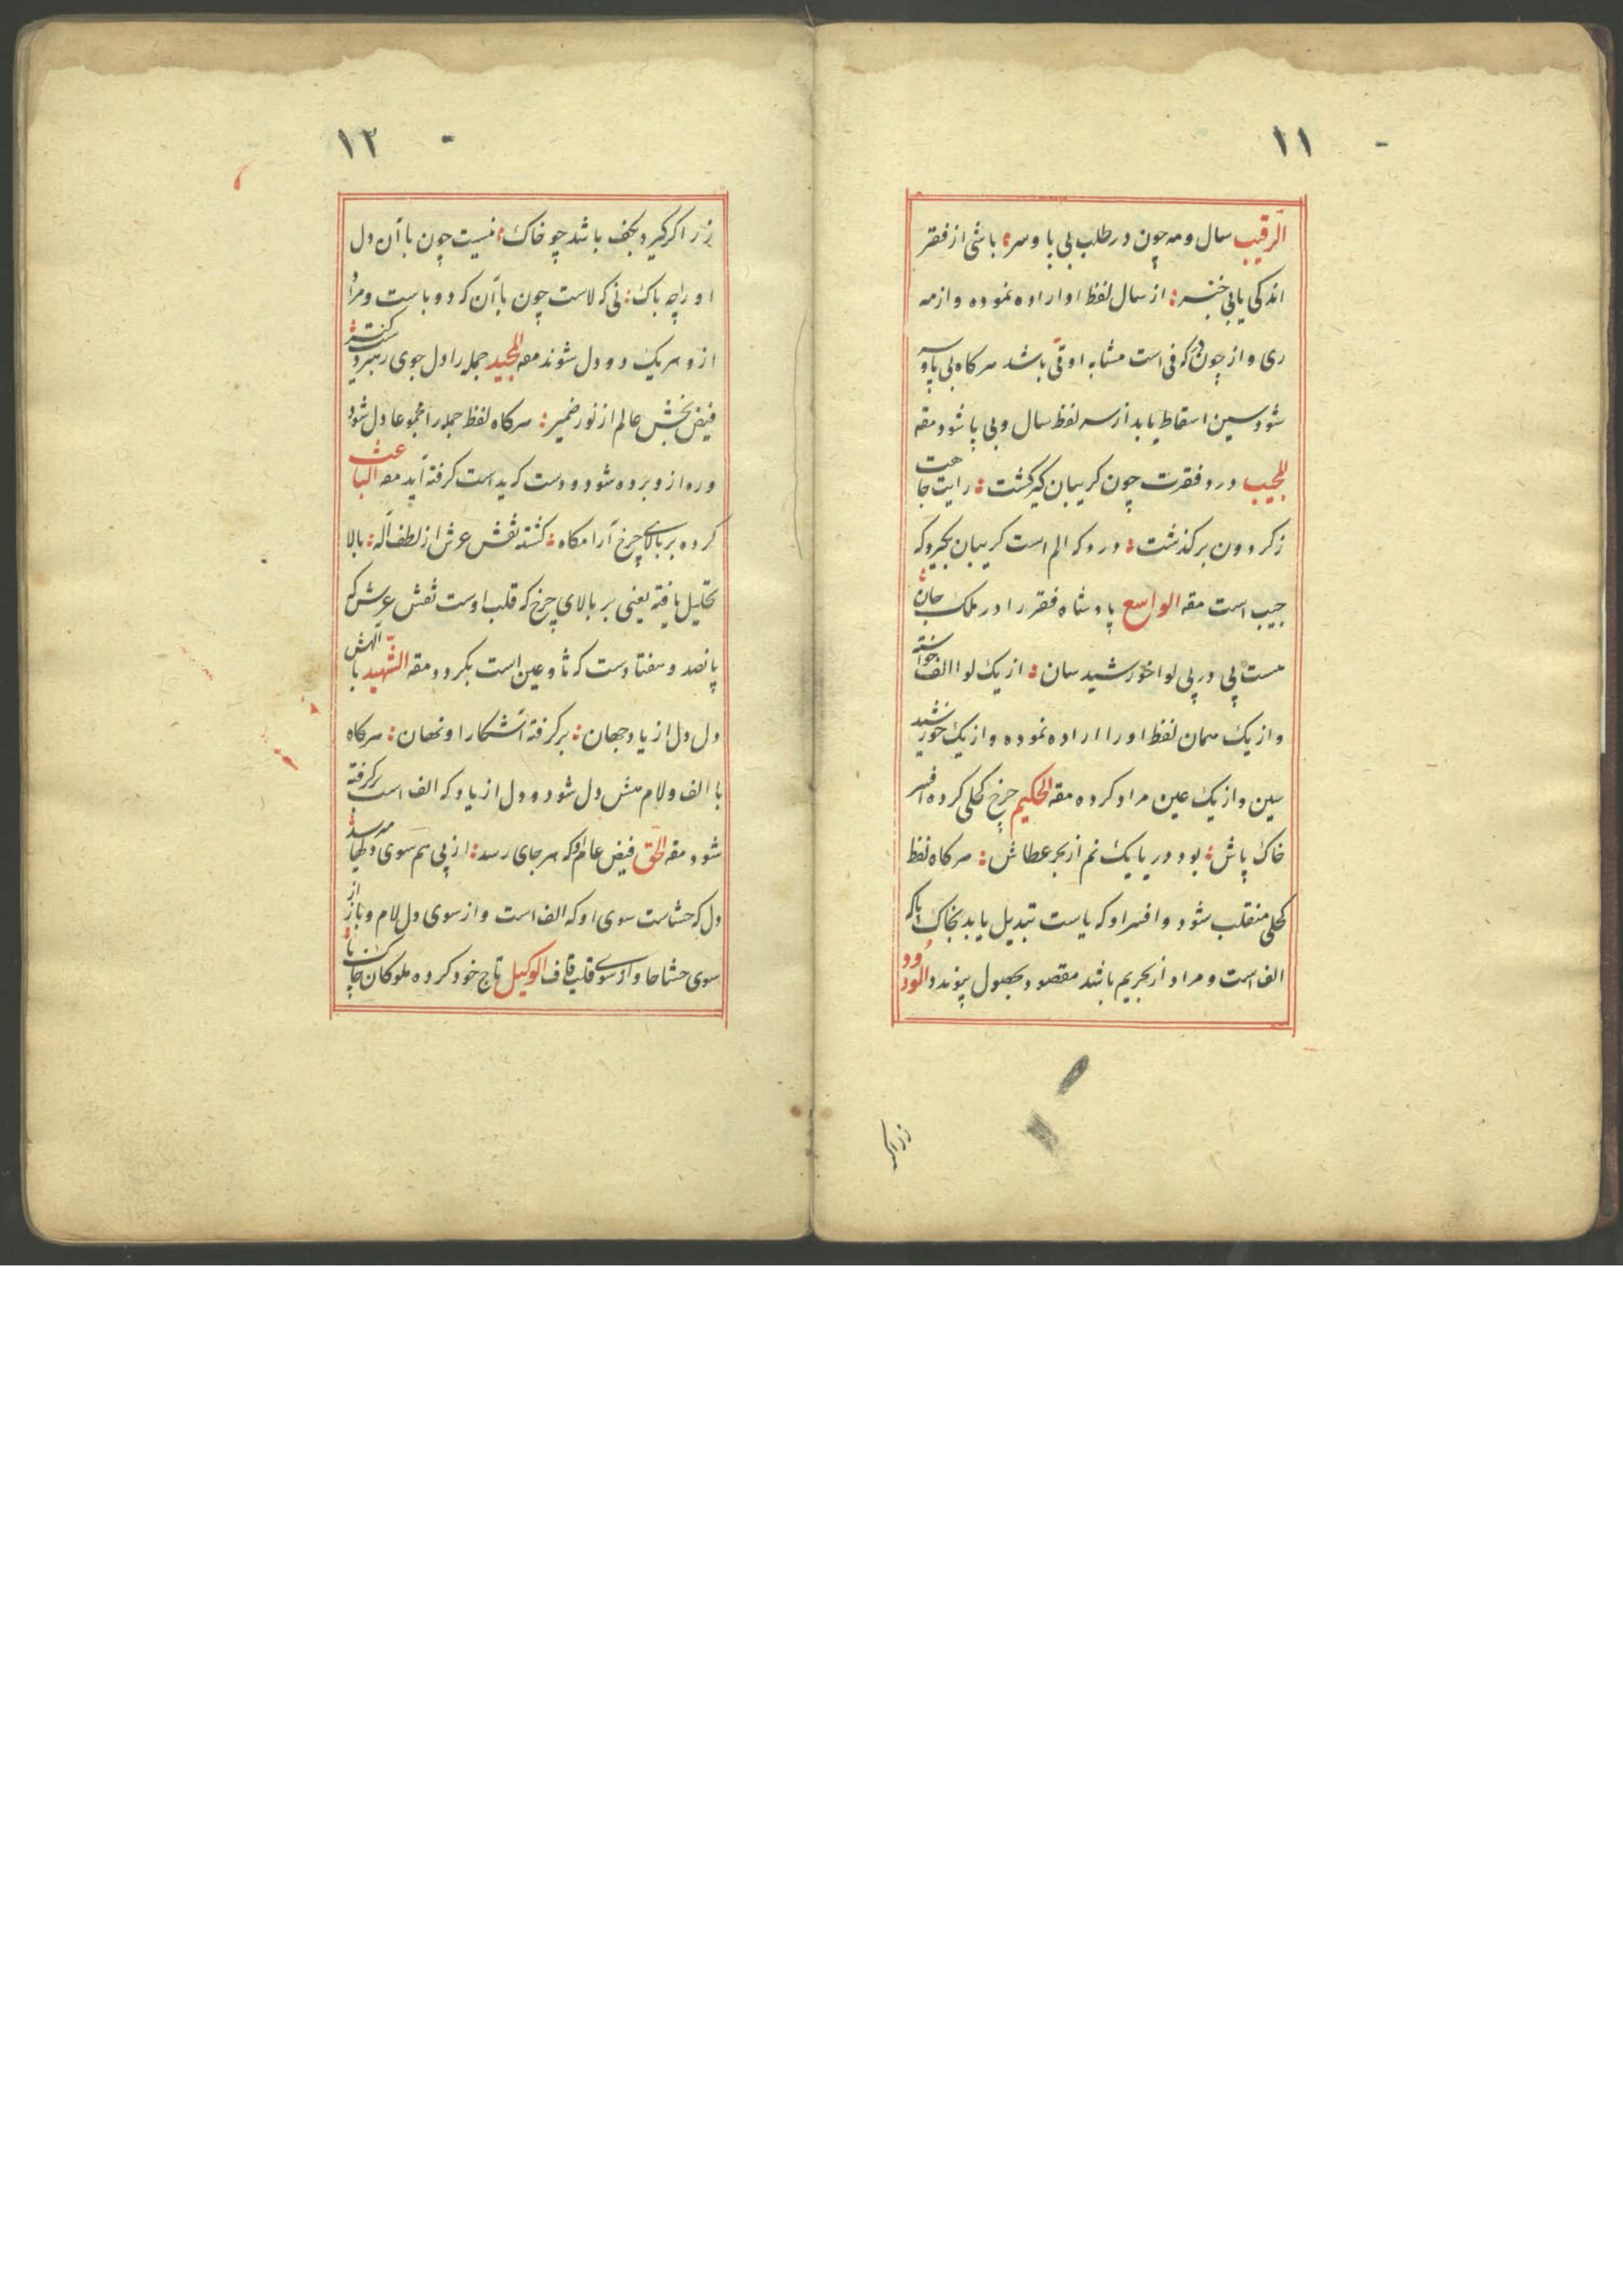 ۱۱
الرقیب سال و مه چون در طلب بی پا و سر؛ باشی از فقر
اندکی یابی خبر؛ از سال لفظ او اراده نموده و از مه
ری و از چون در که فی است مشابه او قی باشد هرکاه بی پا و سر
شود سین اسقاط یابد از سه لفظ سال و بی پا شود مقه
المجیب درد فقرت چون کریبان کیر کشت؛ رایت جاهت
ز کردون بر کذشت؛ درد که الم است کریبان بکیرد که
جیب است مقه الواسع پادشاه فقر را در ملک جان؛
هست پی در پی لوا خورشید سان؛ از یک لوا الف خواسته
و از یک همان لفظ او را اراده نموده و از یک خورشید
سین و از یک عین مراد کرده مقه الحکیم چرخ کحلی کرده افسر
خاک پاش؛ بود دریا یک نم از بحر عطاش؛ هرکاه لفظ
کحلی منقلب شود و افسر او که یاست تبدیل یابد بخاک پا که
الف است و مراد از بحریم باشد مقصود بحصول پیوندد الودود
زر اکر
۱۲
زر اکر کیرد بکف باشد چو خاک؛ نیست چون با آن دل
او را چه باک؛ نی که لاست چون با آن که دو باست و مراد
از و هر یک دو دل شوند مقه المجید جمله را دل جوی رهبر دستکیر؛
فیض بخش عالم از نور ضمیر؛ هرکاه لفظ جمله را مجموعا دل شود
و ره از و برده شود و دست که ید است کرفته آید مقه الباعث
کرده بر بالای چرخ آرامکاه؛ کشته نقش عرش از لطف آله؛ بالا
تحلیل یافته یعنی بر بالای چرخ که قلب اوست نقش عرش که
پانصد و هفتادست که ثا و عین است بکرود مقه الشهید با الهش
دل دل از یاد جهان؛ بر کرفته آشکارا و نهان؛ هرکاه
با الف و لام هش دل شود و دل از یاد که الف است بر کرفته
شود مقه الحق فیض عام او که هر جای رسد؛ از پی هم سوی دلها میرسد؛
دل که حشاست سوی او که الف است و از سوی دل لام و باز از
سوی حشا حا و از سوی قلب قاف الوکیل تاج خود کرده ملوکان خاک پا؛